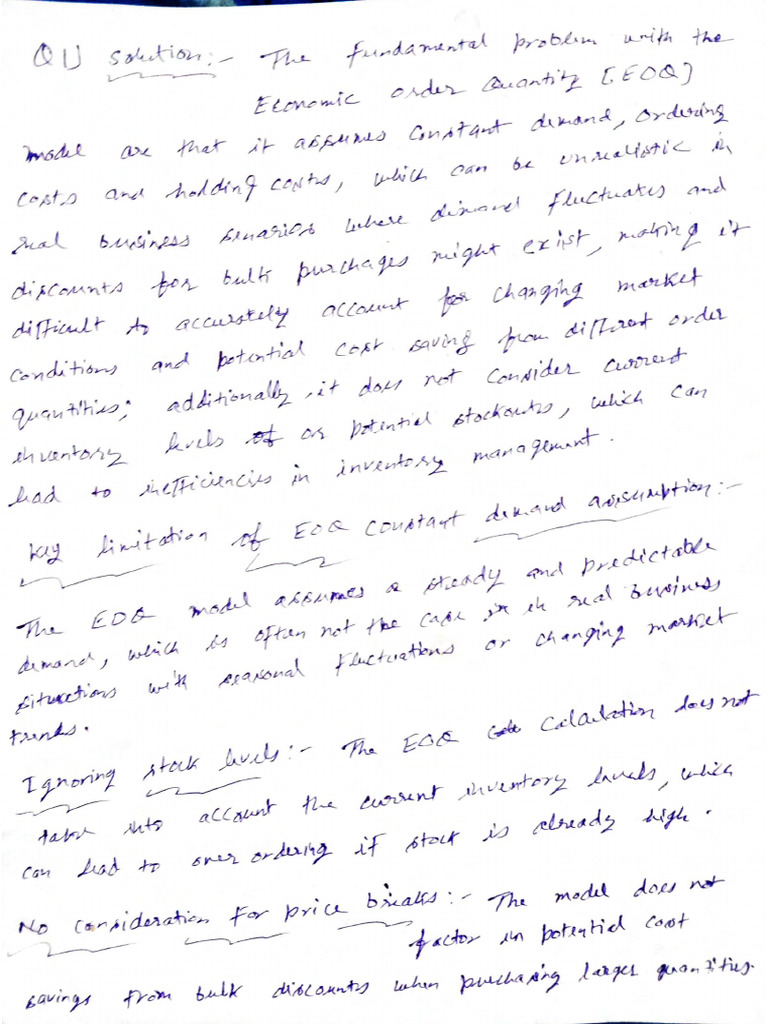 Q1] Solution:- The fundamental problem with the
Economic order Quantity [EOQ]
model are that it assumes constant demand, ordering
costs and holding costs, which can be unrealistic in
real business senarios where demand fluctuates and
discounts for bulk purchages might exist, making it
difficult to accurately account for changing market
conditions and potential cost saving from different order
quantities; additionally, it does not consider current
inventory levels or potential stockouts, which can
lead to inefficiencies in inventory management.
key limitation of EOQ constant demand assumption:-
The EOQ model assumes a steady and predictable
demand, which is often not the case in real business
situations with seasonal fluctuations or changing market
trends.
Ignoring stock levels:- The EOQ calculation does not
take into account the current inventory levels, which
can lead to over ordering if stock is already high.
No consideration for price breaks:- The model does not
factor in potential cost
savings from bulk discounts when purchasing larger quantities.